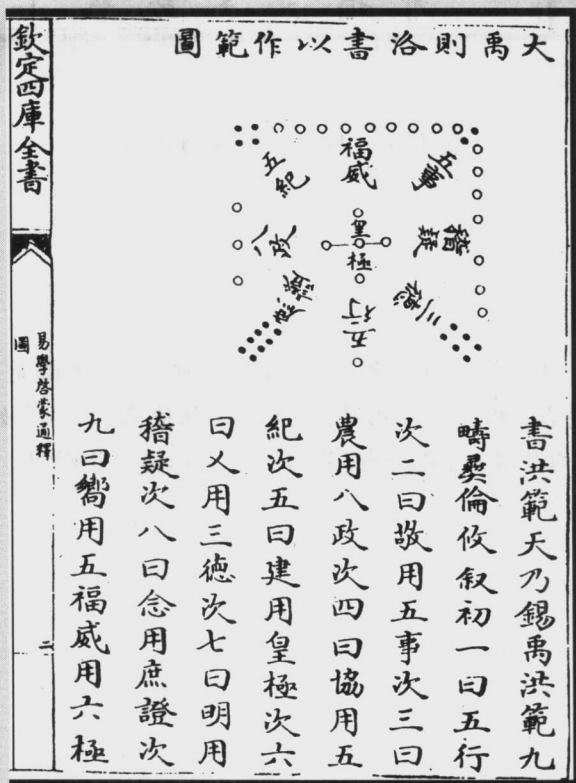 大禹則洛書以作範圖
五事
福威
五紀
稽疑
皇極
八政
三德
五行
庶證
書洪範天乃錫禹洪範九
疇彛倫攸叙初一曰五行
次二曰敬用五事次三曰
農用八政次四曰協用五
紀次五曰建用皇極次六
曰乂用三徳次七曰明用
稽疑次八曰念用庶證次
九曰嚮用五福威用六極
欽定四庫全書
易學啓蒙通釋
圖
二